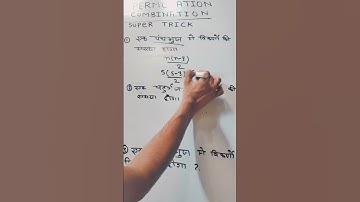 PERMUTATION
COMBINATION
SUPER TRICK
① एक पंचभुज में विकर्णों की
संख्या होगा
n(n-3)
2
5(5-3)
2
② एक की
संख्या होगा
③ एक भुज में विकर्णों
होगा ?